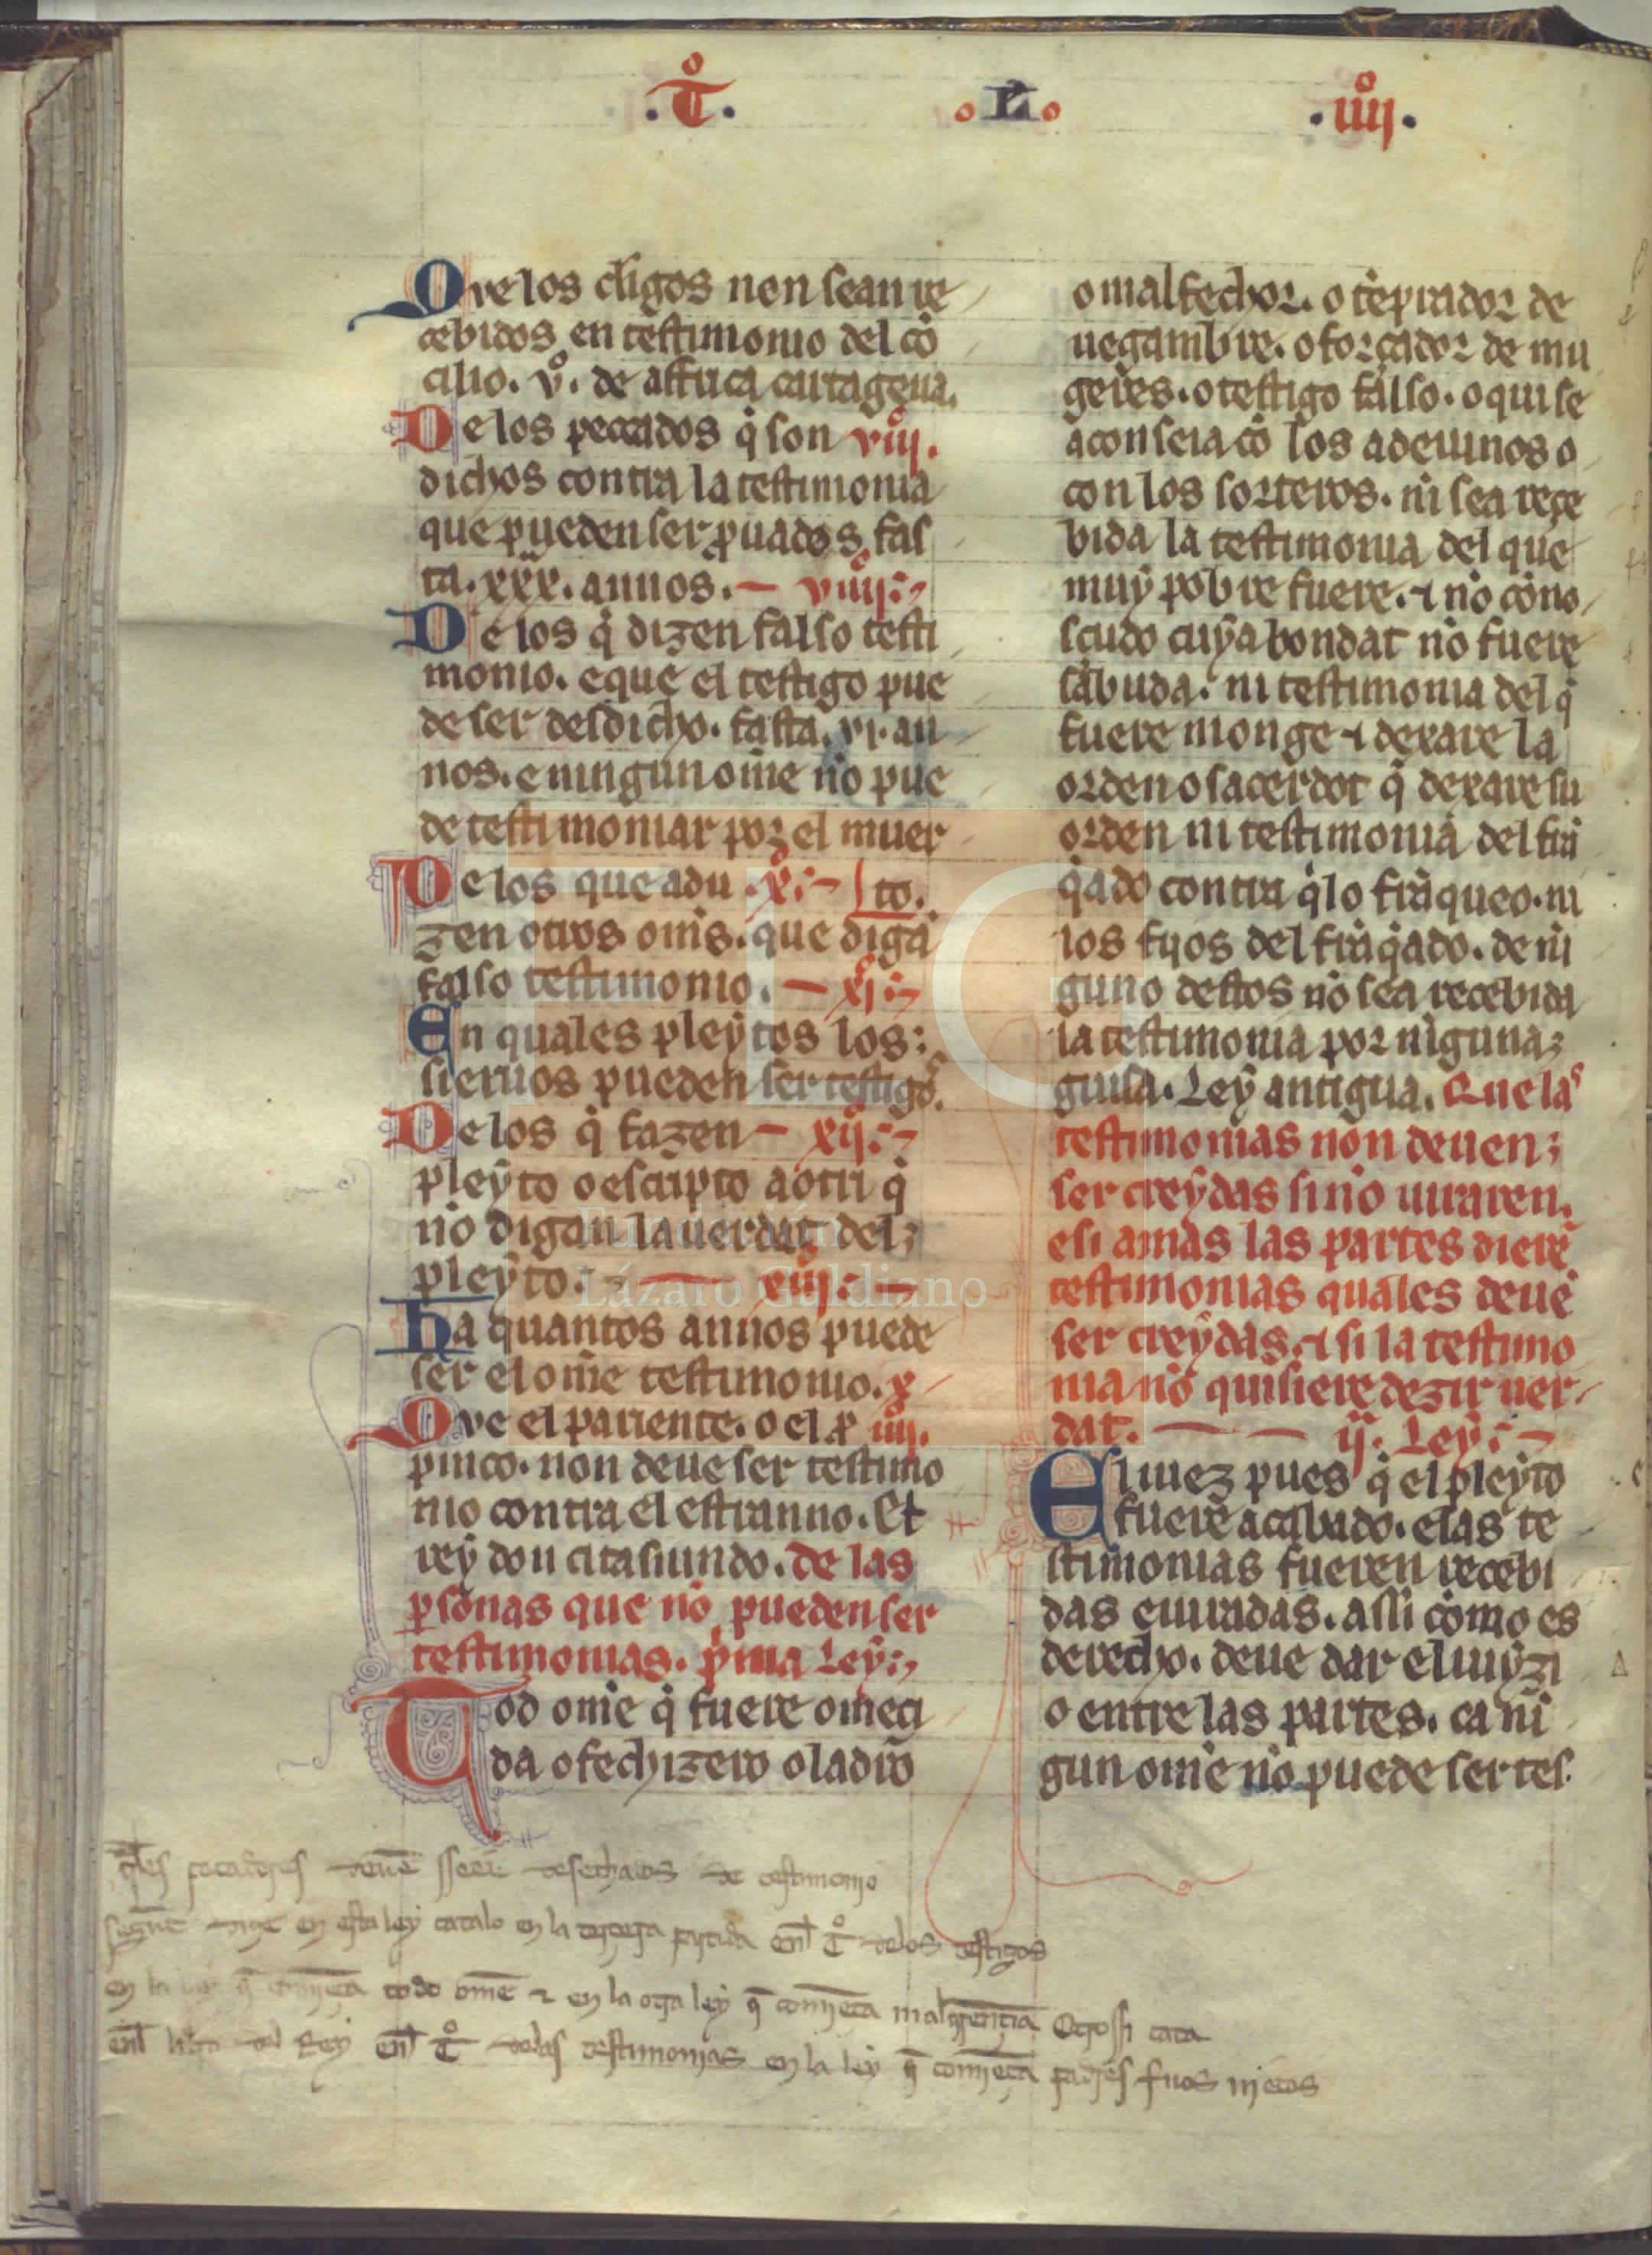 .T̊. .L. .iiij̊.
Que los cl̃igos non sean re
cebidos en testimonio del cõ
cilio. v̊. de affrica cartagena.
De los peccados q̃ son viij.
dichos contra la testimonia
que pueden ser ꝓuados fas
ta. xxx. annos. — viiij:~
De los q̃ dizen falso testi
monio. e que el testigo pue
de ser desdicho. fasta. vi. an
nos. e ningun om̃e nõ pue
de testimoniar por el muer
De los que adu .x:~ to.
zen otros om̃s. que digã
falso testimonio. — xj:~
En quales pleytos los:
sieruos pueden ser testigos.
De los q̃ fazen — xij:~
pleyto o escripto a otri q̃
nõ digan la uerdat del;
pleyto. — xiij:—
Ha quantos annos puede
ser el om̃e testimonio. x
Que el pariente. o el ꝓ iiij.
pinco. non deue ser testimo
nio contra el estranno. Et
rey don citasiundo. de las
ꝑsonas que nõ pueden ser
testimonias. p̃ma Ley:~
Tod om̃e q̃ fuere omeci
da o fechizero o ladrõ
o malfechor. o tẽprador de
uegambre. o forçador de mu
geres. o testigo falso. o qui se
aconseia cõ los adeuinos o
con los sorteros. nĩ sea reçe
bida la testimonia del que
muy pobre fuere. ⁊ nõ cõno
scudo cuya bondat nõ fuere
sabuda. ni testimonia del q̃
fuere monge ⁊ dexare la
orden o sacerdot q̃ dexare su
orden ni testimonia del frã
q̃ado contra q̃ lo frãqueo. ni
los fijos del frãq̃ado. de nĩ
guno destos nõ sea recebida
la testimonia por nĩguna;
guisa. Ley antigua. Que las
testimonias non deuen;
ser creydas si nõ iuraren.
e si amas las partes dierẽ
testimonias quales deuẽ
ser creydas. ⁊ si la testimo
nia nõ quisiere dezir uer-
dat. — — ij. Ley:~
El iuez pues q̃ el pleyto
fuere acabado. e las te
stimonias fueren recebi
das e iuradas. assi cõmo es
derecho. deue dar el iuyzi
o entre las partes. ca nĩ
gun om̃e nõ puede ser tes
q̃les pecadores deuẽ sseer desechados de testimonio
segunt dize en esta ley catalo en la tercera partida enl̃ T̊ delos testigos
en la ley q̃ comieça todo om̃e ⁊ en la otra ley q̃ comieça Otrossi cata
enl̃ libro del Rey enl̃ T̊ delas testimonias en la ley q̃ comieça padres fijos nietos
Lázaro Galdiano